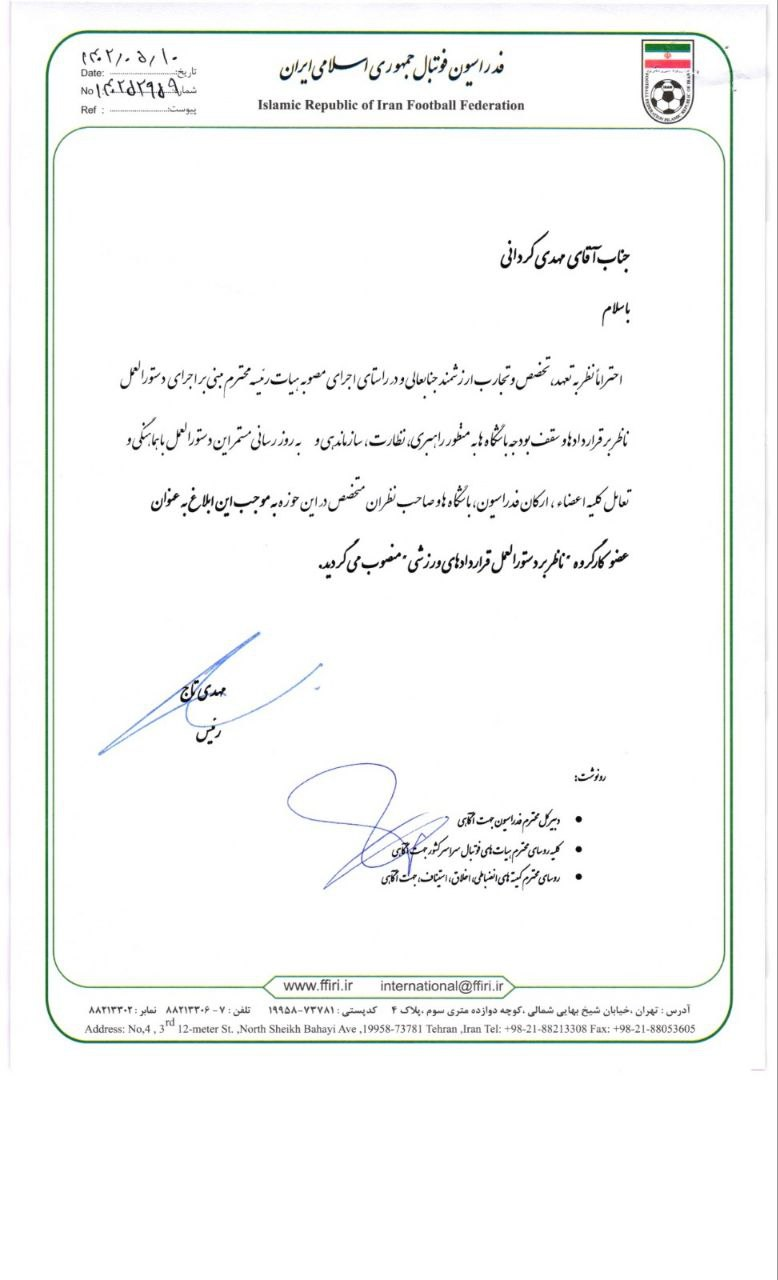 فدراسیون فوتبال جمهوری اسلامی ایران
Islamic Republic of Iran Football Federation
۱۴۰۲/۰۵/۱۰
Date: تاریخ:
No شماره ۱۴۰۲۵۲۹۵۹
Ref : پیوست:
جناب آقای مهدی کردانی
باسلام
احتراماً نظر به تعهد، تخصص و تجارب ارزشمند جنابعالی و در راستای اجرای مصوبه هیات رئیسه محترم مبنی بر اجرای دستورالعمل
ناظر بر قراردادها و سقف بودجه باشگاه ها به منظور راهبری، نظارت، سازماندهی و به روز رسانی مستمر این دستورالعمل با هماهنگی و
تعامل کلیه اعضاء ، ارکان فدراسیون، باشگاه ها و صاحب نظران متخصص در این حوزه به موجب این ابلاغ به عنوان
عضو کارگروه "ناظر بر دستورالعمل قراردادهای ورزشی" منصوب می گردید.
مهدی تاج
رئیس
رونوشت:
• دبیرکل محترم فدراسیون جهت آگاهی
• کلیه روسای محترم هیات های فوتبال سراسر کشور جهت آگاهی
• روسای محترم کمیته های انضباطی، اخلاق، استیناف، جهت آگاهی
www.ffiri.ir international@ffiri.ir
آدرس : تهران ،خیابان شیخ بهایی شمالی ،کوچه دوازده متری سوم ،پلاک ۴ کدپستی : ۷۳۷۸۱-۱۹۹۵۸ تلفن : ۷ - ۸۸۲۱۳۳۰۶ نمابر : ۸۸۲۱۳۳۰۲
Address: No,4 , 3rd 12-meter St. ,North Sheikh Bahayi Ave ,19958-73781 Tehran ,Iran Tel: +98-21-88213308 Fax: +98-21-88053605